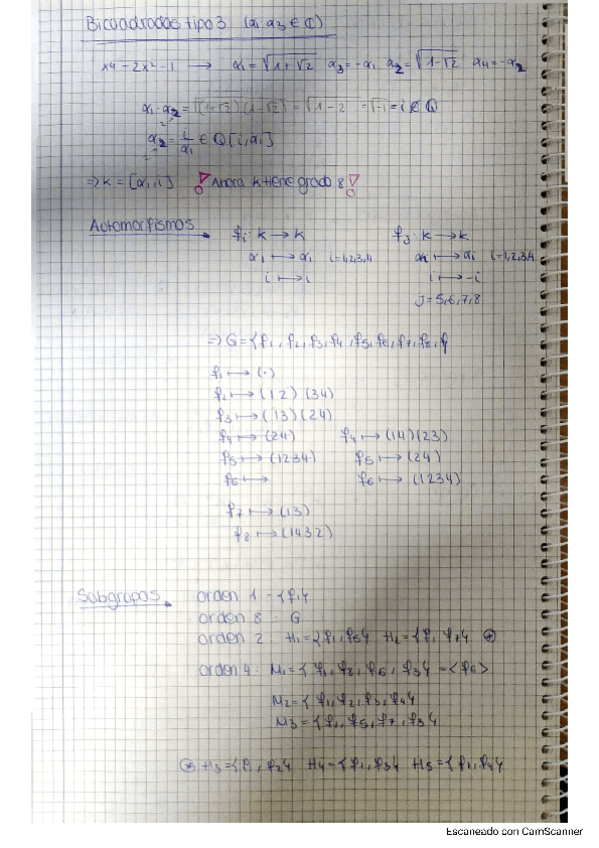 Bicuadradas tipo 3 (α₁ α₃ ∈ ℂ)
x4 - 2x² - 1 → α₁ = √1+√2 α₃ = -α₁ α₂ = √1-√2 α₄ = -α₂
α₁·α₂ = √(1+√2)(1-√2) = √1-2 = √-1 = i ∉ Q
α₂ = i/α₁ ∈ Q[i,α₁]
⇒ K = [α₁, i] ¡Ahora K tiene grado 8!
Automorfismos → fi: K → K fj: K → K
α₁ ↦ αi i=1,2,3,4 α₁ ↦ αi i=1,2,3,4
i ↦ i i ↦ -i
J = 5,6,7,8
⇒ G = {f₁, f₂, f₃, f₄, f₅, f₆, f₇, f₈, {
f₁ ↦ (·)
f₂ ↦ (12)(34)
f₃ ↦ (13)(24)
f₄ ↦ (24) f₄ ↦ (14)(23)
f₅ ↦ (1234) f₅ ↦ (24)
f₆ ↦ f₆ ↦ (1234)
f₇ ↦ (13)
f₈ ↦ (1432)
Subgrupos orden 1 = {f₁}
orden 8 : G
orden 2 : H₁ = {f₁, f₅} H₂ = {f₁, f₇} ⊛
orden 4 : M₁ = {f₁, f₈, f₆, f₃} = <f₆>
M₂ = {f₁, f₂, f₃, f₄}
M₃ = {f₁, f₅, f₇, f₃}
⊛ H₃ = {f₁, f₂} H₄ = {f₁, f₃} H₅ = {f₁, f₄}
Escaneado con CamScanner